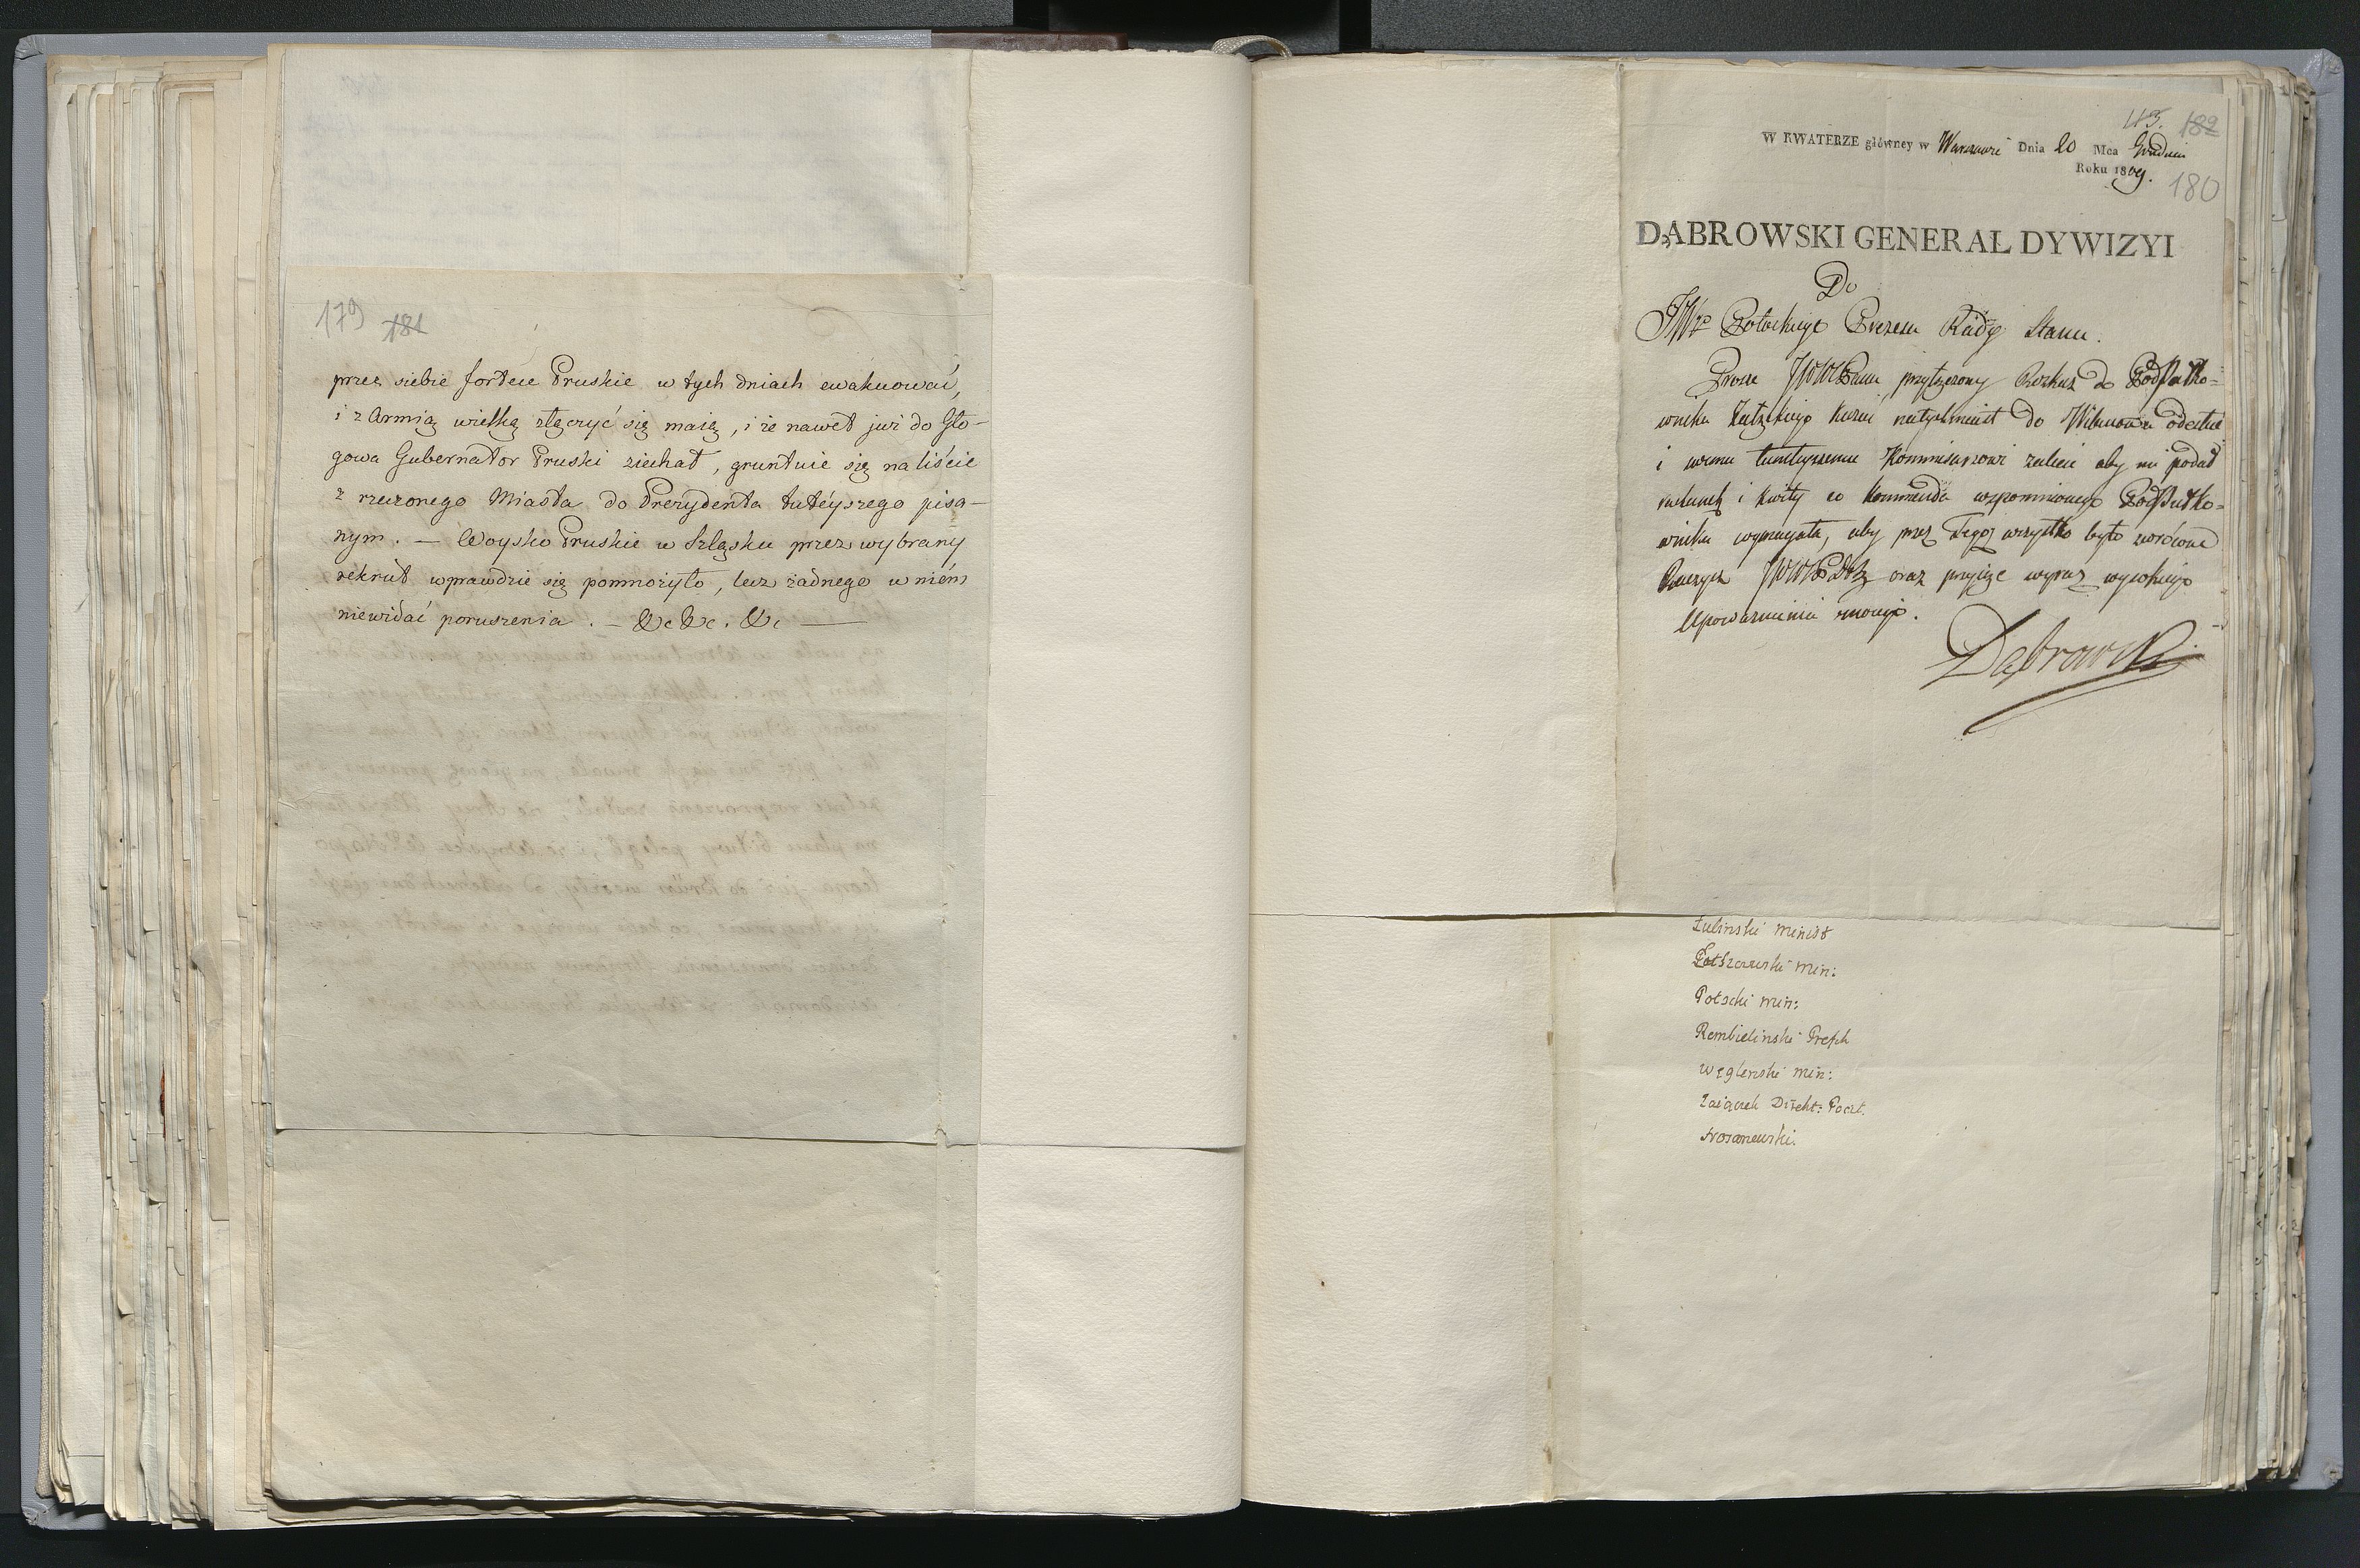 179 181
przez siebie fortece Pruskie w tych dniach ewakuować,
i z Armią wielką złączyć się maią, i że nawet już do Gło-
gowa Gubernator Pruski ziechał, gruntuie się na liście
z rzeczonego Miasta do Prezydenta tutéyszego pisa-
nym. — Woysko Pruskie w Szląsku przez wybrany
rekrut wprawdzie się pomnożyło, lecz żadnego w niém
niewidać poruszenia. — &c &c. &c —
113. 182
W KWATERZE główney w Warszawie Dnia 20 Mca Grudnia
Roku 1809.
180
DĄBROWSKI GENERAŁ DYWIZYI
Do
JWgo Potockiego Prezesa Rady Stanu.
Proszę JWWPana przyłączony Rozkaz do Podpułko-
wnika kazać natychmiast do Wilanowa odesłać
i swemu tamtejszemu Kommisarzowi zalecić aby mi podał
rachunek i kwity co Kommenda wspomnionego Podpułko-
wnika wymagała, aby przez Tegoż wszystko było zwrócone
Raczysz oraz przyiąć wyraz wysokiego
Upoważnienia mojego.
Dąbrowski
Łubiński Minist
Min:
Potocki Min:
Rembielinski Prefek
Węglenski Min:
Zaiączek Direkt: Poczt.